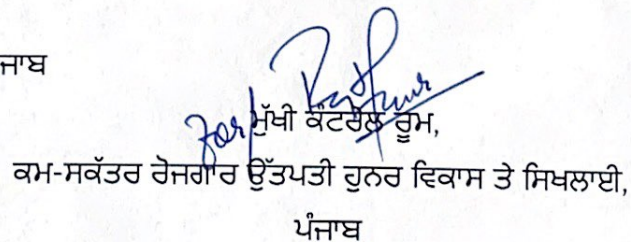 ਜਾਬ
for/ਮੁੱਖੀ ਕੰਟਰੋਲ ਰੂਮ,
ਕਮ-ਸਕੱਤਰ ਰੋਜਗਾਰ ਉੱਤਪਤੀ ਹੁਨਰ ਵਿਕਾਸ ਤੇ ਸਿਖਲਾਈ,
ਪੰਜਾਬ